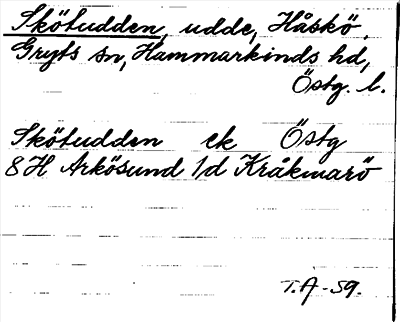 Skötudden, udde, Håskö,
Gryts sn, Hammarkinds hd,
Östg. l.
Skötudden ek Östg
8H Arkösund 1d Kråkmarö
T.A-59.